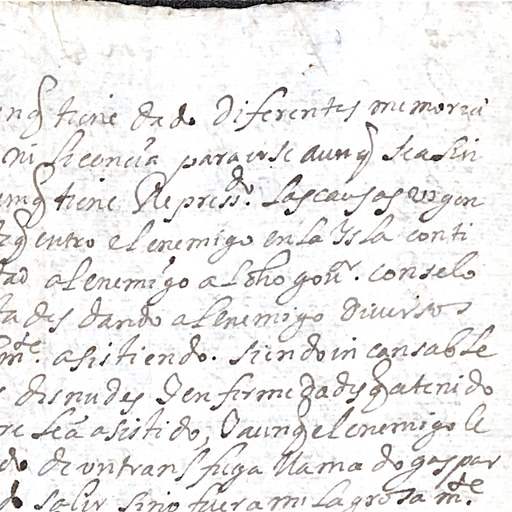 unq tiene dado Diferentes memoria
ni licencia para irse aunq sea sin
umq tiene Repress.do las causas urgen
q entro el enemigo en la Isla conti
tad al enemigo al dho gour. con selo
tades dando al enemigo Diversos
mte. asistiendo. siendo incansable
desnudes Y enfermedades q a tenido
re le a asistido, Y aunq el enemigo le
do de un transfuga llamado gaspar
do salir sino fuera milagrosa mte